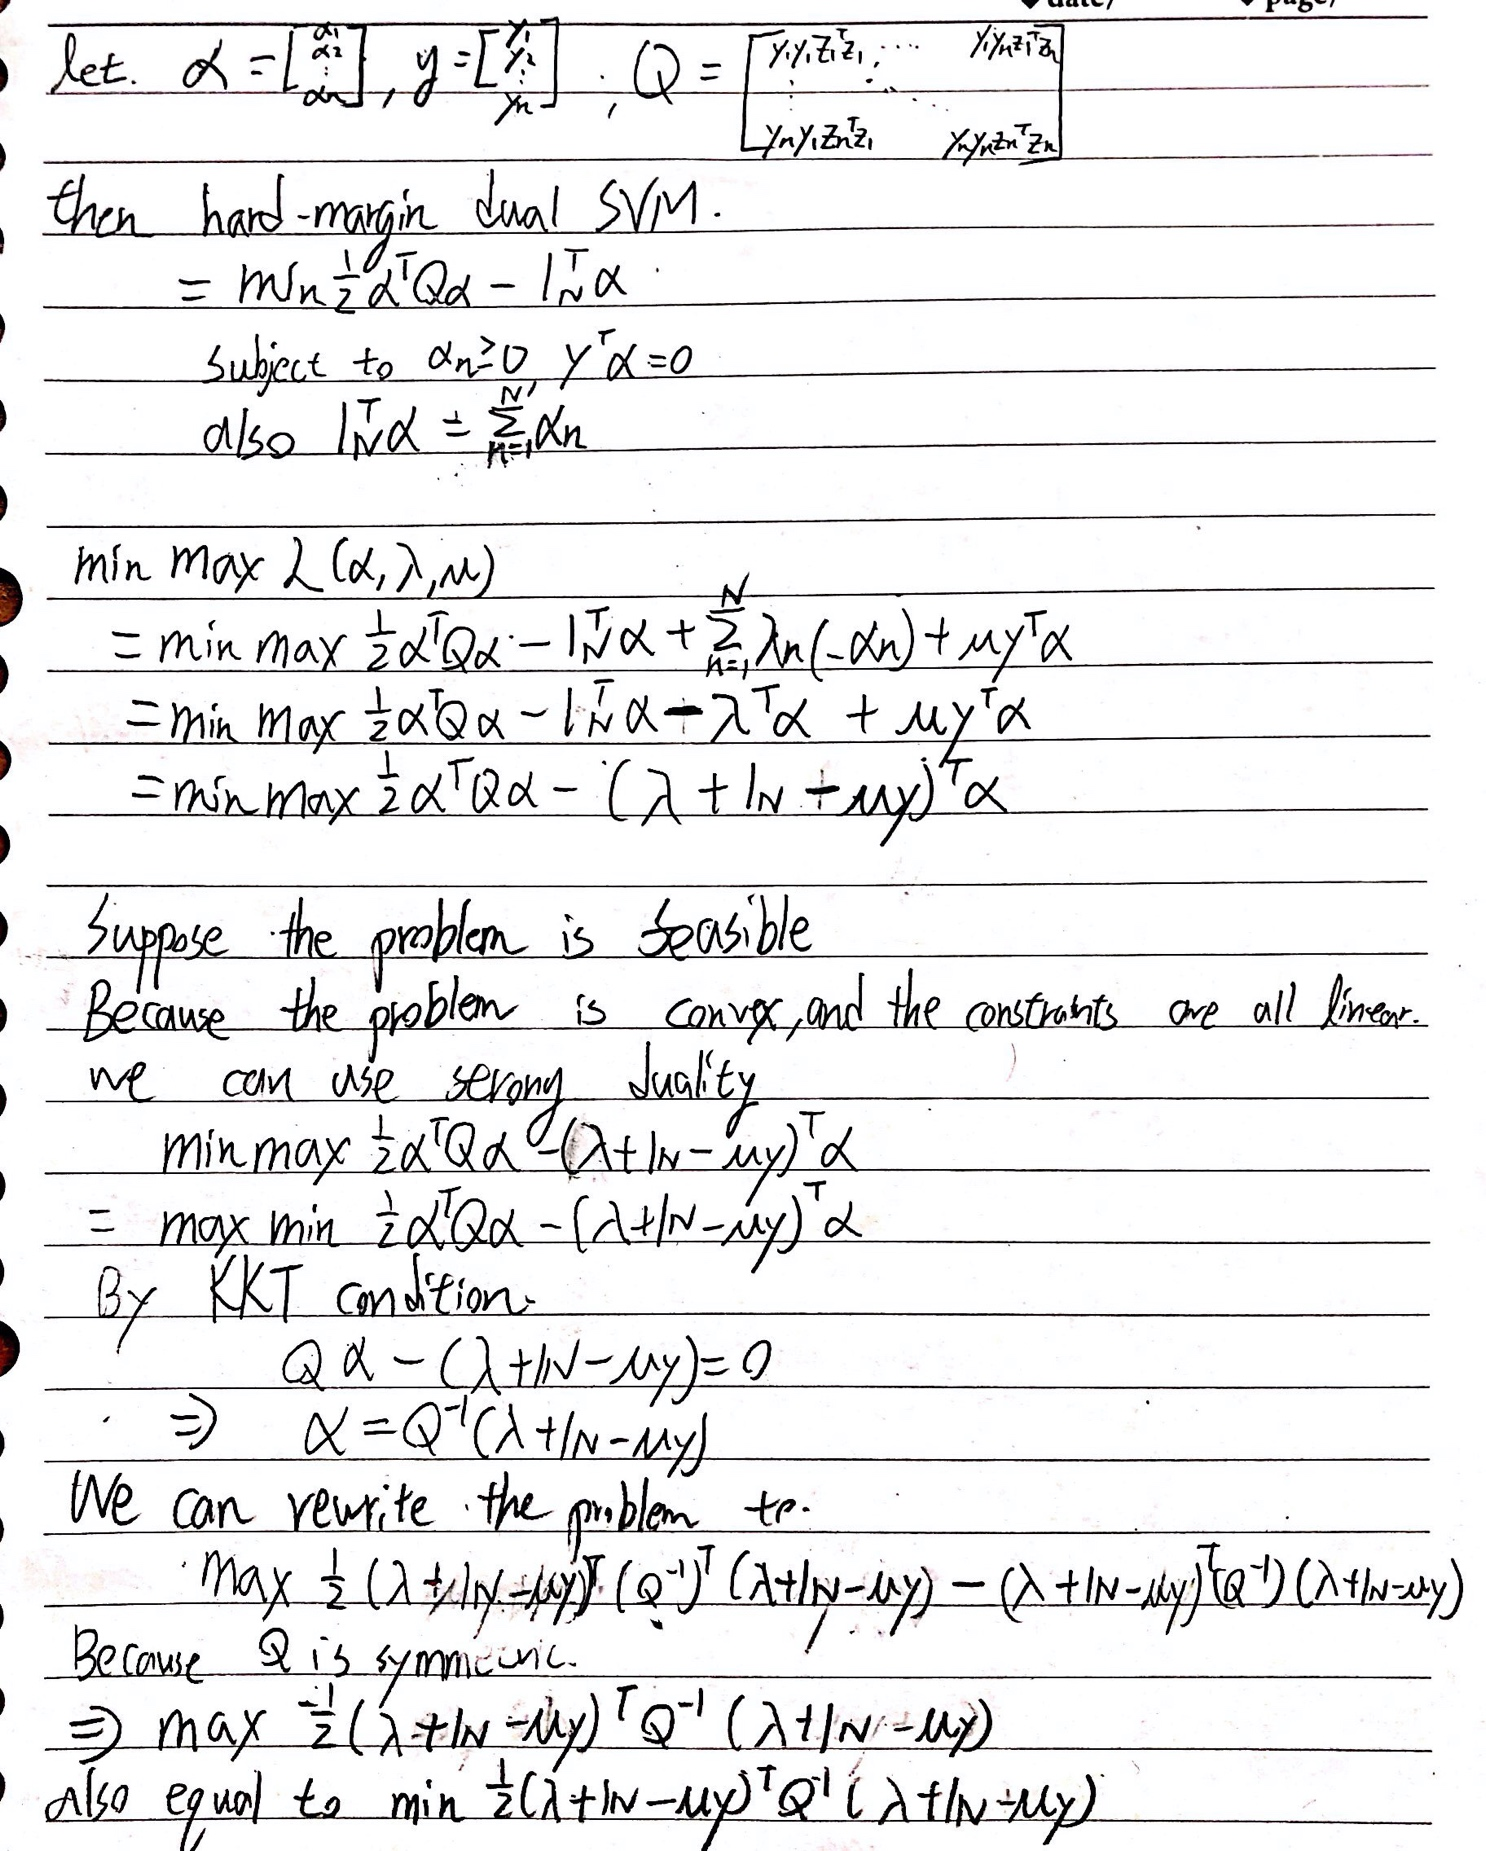 date/ page/
let. α = [α1 α2 ⋮ αn], y = [y1 y2 ⋮ yn], Q = [y1y1z1ᵀz1 ⋯ y1ynz1ᵀzn ⋮ ⋱ yny1znᵀz1 ynynznᵀzn]
then hard-margin dual SVM.
= min ½αᵀQα − 1ₙᵀα
subject to αn ≥ 0, yᵀα = 0
also 1ₙᵀα = Σₙ₌₁ᴺ αn
min max L(α, λ, μ)
= min max ½αᵀQα − 1ₙᵀα + Σₙ₌₁ᴺ λn(−αn) + μyᵀα
= min max ½αᵀQα − 1ₙᵀα − λᵀα + μyᵀα
= min max ½αᵀQα − (λ + 1ₙ + μy)ᵀα
Suppose the problem is feasible
Because the problem is convex, and the constraints are all linear.
we can use serong duality
min max ½αᵀQα − (λ + 1ₙ − μy)ᵀα
= max min ½αᵀQα − (λ + 1ₙ − μy)ᵀα
By KKT condition.
Qα − (λ + 1ₙ − μy) = 0
⇒ α = Q⁻¹(λ + 1ₙ − μy)
We can rewrite the problem to.
max ½(λ + 1ₙ − μy)ᵀ(Q⁻¹)ᵀ(λ + 1ₙ − μy) − (λ + 1ₙ − μy)ᵀ(Q⁻¹)(λ + 1ₙ − μy)
Because Q is symmetric.
⇒ max −½(λ + 1ₙ − μy)ᵀQ⁻¹(λ + 1ₙ − μy)
Also equal to min ½(λ + 1ₙ − μy)ᵀQ⁻¹(λ + 1ₙ − μy)